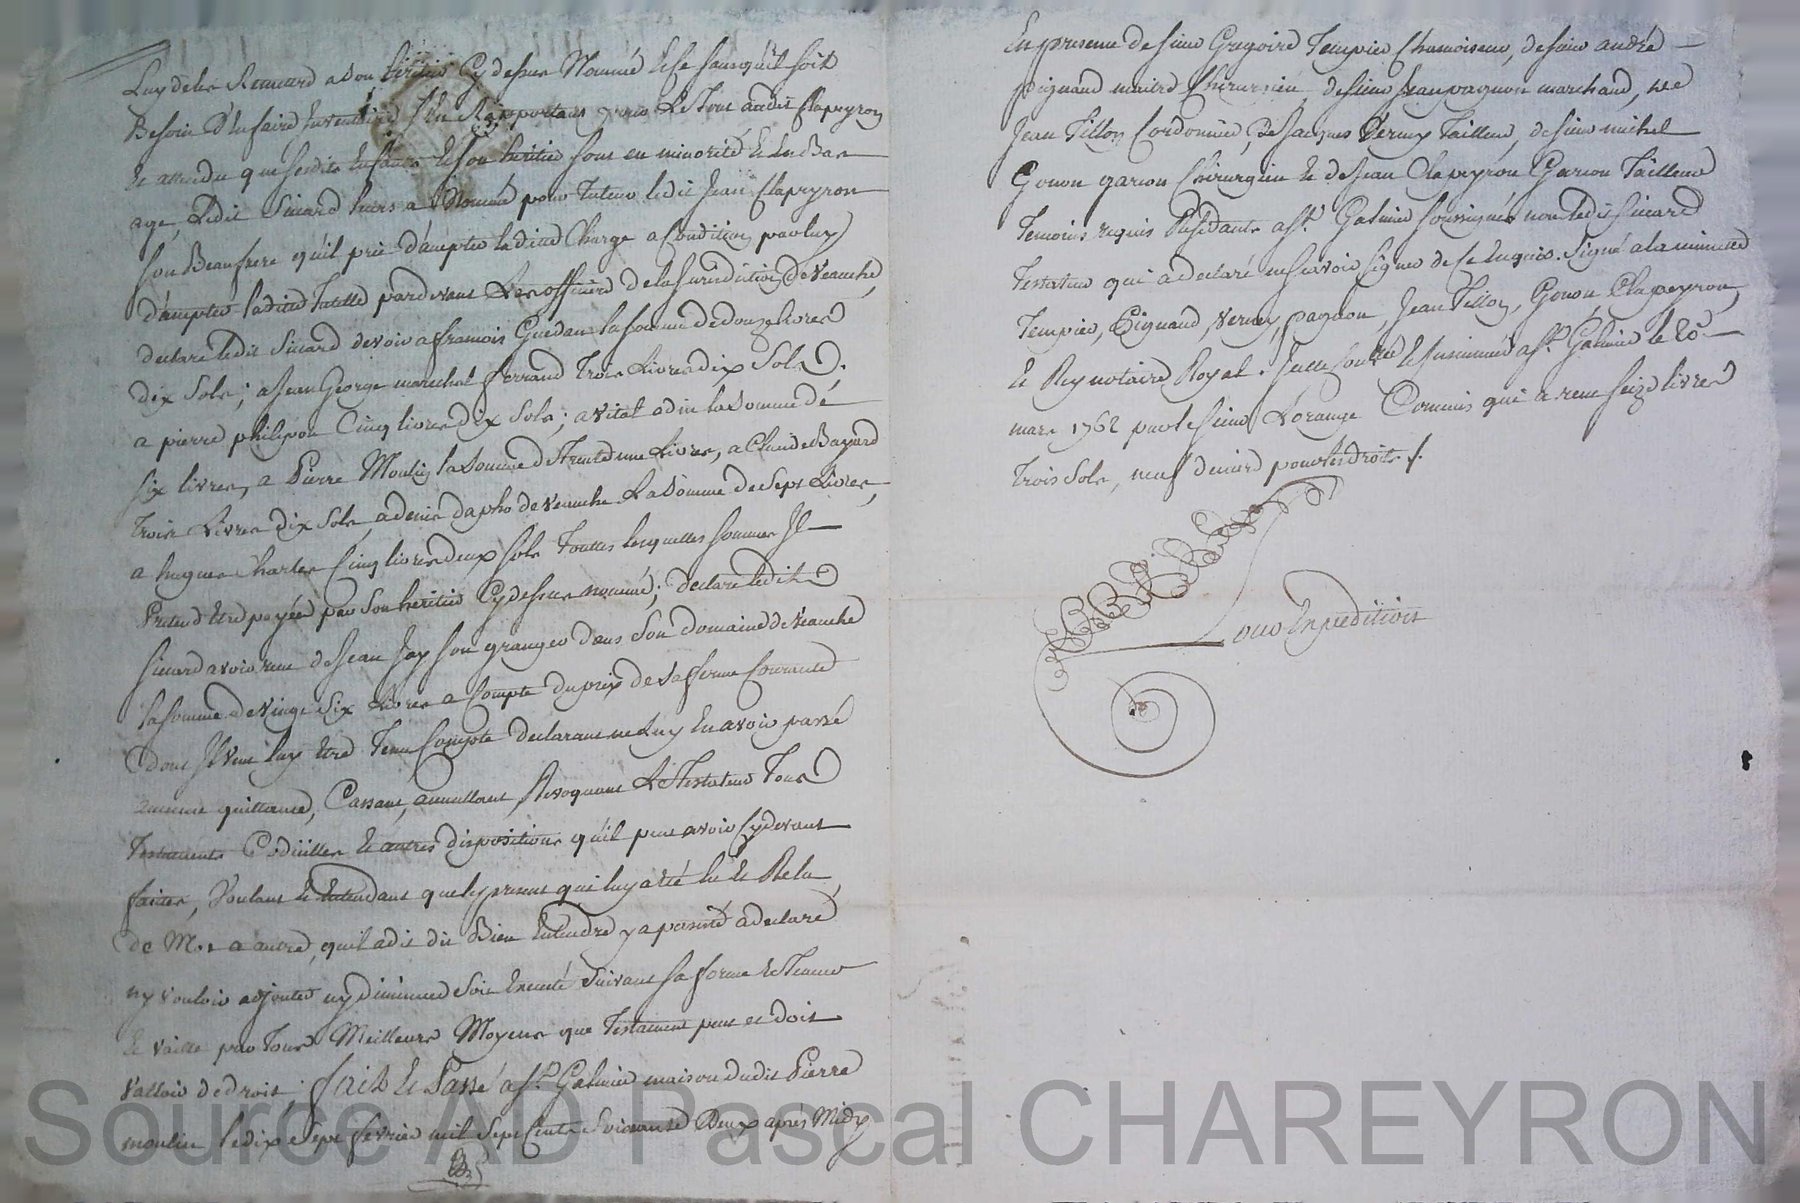 Luy de les Remtard a son heritier Cy dessus Nommé Et se sans qu'il soit
Besoin d'En faire Inventaire S'En Rapportant pour Le tout audit Clapeyron
Et attendu que sesdits Enfants Et son heritier sont en minorité Et En Bas
age, Ledit Sicard leurs a Nommé pour Tuteur ledit Jean Clapeyron
son Beaufrere qu'il prie d'accepter ladite Charge a Condition par luy
d'accepter ladite Tutelle pardevant Les officiers de la Jurisdiction de Veauche,
declare ledit Sicard devoir a françois Guedan la somme de douze livres
dix Sols; a Jean George marechal ferrand Trois Livres dix Sols,
a pierre philipon Cinq livres dix Sols; a vital odin la Somme de
six livres, a Pierre Moulin la Somme de Trente une Livres, a Claude Bayard
trois Livres dix Sols, a denis dapho de veauche La Somme de Sept Livres,
a hugues Charles Cinq livres deux sols Toutes lesquelles sommes Il
Pretend Etre payées par Son heritier Cy dessus nommé; declare ledit
Sicard avoir reçu de Jean Jay son granger dans Son domaine de Veauche
la somme de vingt Six Livres a Compte du prix de sa ferme Courante
dont Il veut luy Etre Tenu Compte declarant ne Luy En avoir passé
aucune quittance, Cassant, annullant, Revoquant Le Testateur Tous
Testaments Codicilles Et autres dispositions qu'il peut avoir Cy devant
faites, Voulant Et Entendant que le present qui luy a été lu Et Relu
de Mot a autre, qu'il a dit du Bien Entendre y a persisté a declaré
ny vouloir adjouter ny diminuer Soit Executé Suivant sa forme Et Teneur
Et vaille par Tous Meilleurs Moyens que Testament peut et doit
valloir de droit. fait Et Passé a St. Galmier maison dudit Pierre
moulin Le dix e Sept fevrier mil Sept Cents Soixante Deux après Midy
En presence de sieur Gregoire Tempier Chamoiseur, de sieur andré
Pignand maitre Chirurgien, de sieur Jean pagnon marchand, de
Jean Tillon Cordonnier, De Jacques Verny Tailleur, de sieur michel
Gonon garçon Chirurgien Et de Jean Clapeyron Garçon Tailleur
Temoins requis Residants a St. Galmier soussignés non ledit Sicard
Testateur qui a declaré ne sçavoir signer de ce Enquis. Signé a la minute
Tempier, Pignand, Verny, pagnon, Jean Tillon, Gonon, Clapeyron,
Et Rey notaire Royal. Icelle Coner. Et Insinuée a St. Galmier le 20e
mars 1762 par le sieur Lorange Commis qui a reçu seize livres
trois Sols, neuf deniers pour les droits ./.
pour Expedition
Source AD Pascal CHAREYRON